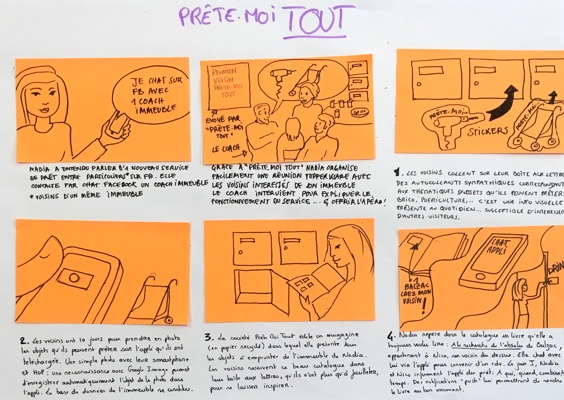 PRÊTE-MOI TOUT
JE CHAT SUR
FB AVEC
1 COACH
IMMEUBLE
NADIA A ENTENDU PARLER D'1 NOUVEAU SERVICE
DE PRÊT ENTRE PARTICULIERS SUR FB. ELLE
CONTACTE PAR CHAT FACEBOOK UN COACH IMMEUBLE
* VOISINS D'UN MÊME IMMEUBLE
RÉUNION
VOISIN
PRÊTE-MOI
TOUT
ENVOYÉ PAR
"PRÊTE-MOI
TOUT"
LE COACH
GRÂCE À "PRÊTE MOI TOUT" NADIA ORGANISE
FACILEMENT UNE RÉUNION TUPPERWARE AVEC
LES VOISINS INTÉRESSÉS DE SON IMMEUBLE
LE COACH INTERVIENT POUR EXPLIQUER LE
FONCTIONNEMENT DU SERVICE... & OFFRIR L'APÉRO!
PRÊTE-MOI
PRÊTE-MOI
STICKERS
1. LES VOISINS COLLENT SUR LEUR BOÎTE AUX LETTRES
DES AUTOCOLLANTS SYMPATHIQUES CORRESPONDANT
AUX THÉMATIQUES D'OBJETS QU'ILS PEUVENT PRÊTER
BRICO, PUERICULTURE,... C'EST UNE INFO VISUELLE
PRÉSENTE AU QUOTIDIEN... SUSCEPTIBLE D'INTÉRESSER
D'AUTRES VISITEURS.
2. Les voisins ont 10 jours pour prendre en photo
les objets qu'ils peuvent prêter sur l'appli qu'ils ont
téléchargée. Une simple photo avec leur smartphone
et HOP : une reconnaissance avec Google Images permet
d'enregistrer automatiquement l'objet de la photo dans
l'appli. La base de données de l'immeuble se constitue.
3. La société Prête Moi Tout édite un magazine
(en papier recyclé) dans lequel elle présente tous
les objets à emprunter de l'immeuble de Nadia.
Les voisins reçoivent ce beau catalogue dans
leur boîte aux lettres, qu'ils n'ont plus qu'à feuilleter,
pour se laisser inspirer.
1 BALZAC
CHEZ MON
VOISIN!
CHAT
APPLI
DRING
4. Nadia repère dans le catalogue un livre qu'elle a
toujours voulu lire : À la recherche de l'absolu de Balzac,
appartenant à Nico, son voisin du dessus. Elle chat avec
lui via l'appli pour convenir d'un rdv. Le jour J, Nadia
et Nico informent l'appli du prêt. A qui, quand, combien de
temps. Des notifications "push" lui permettront de rendre
le livre au bon moment.